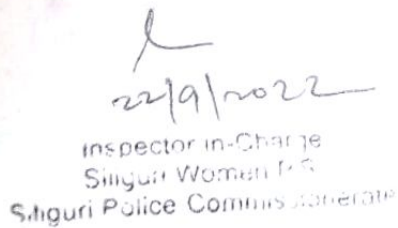 22/9/2022
Inspector in-Charge
Siliguri Women P.S
Siliguri Police Commissionerate